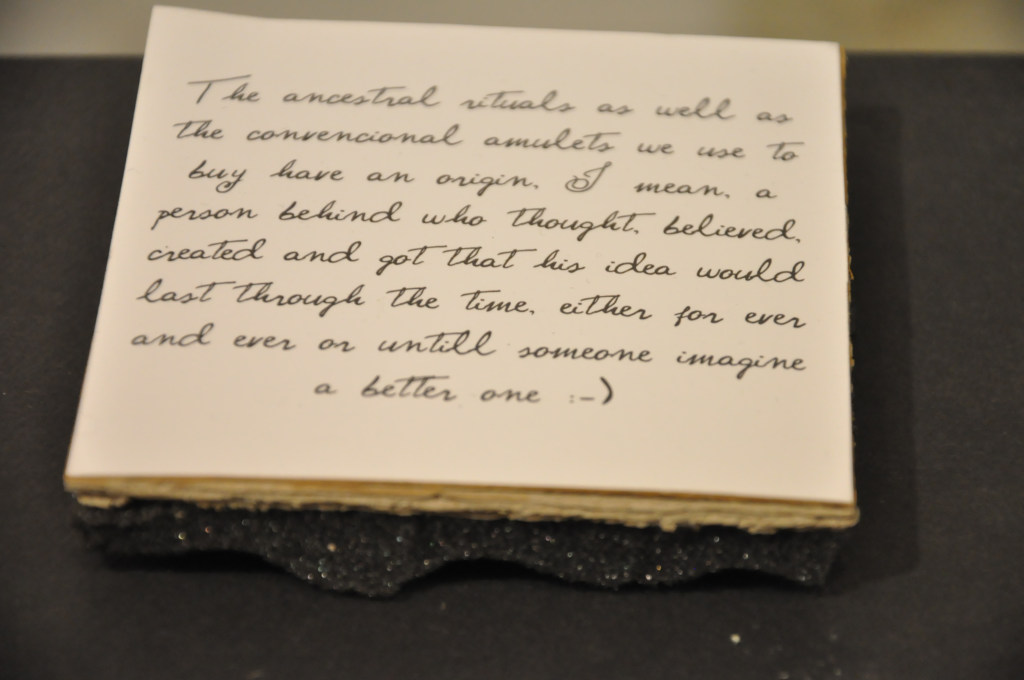 The ancestral rituals as well as
the convencional amulets we use to
buy have an origin. I mean, a
person behind who thought, believed,
created and got that his idea would
last through the time, either for ever
and ever or untill someone imagine
a better one :-)